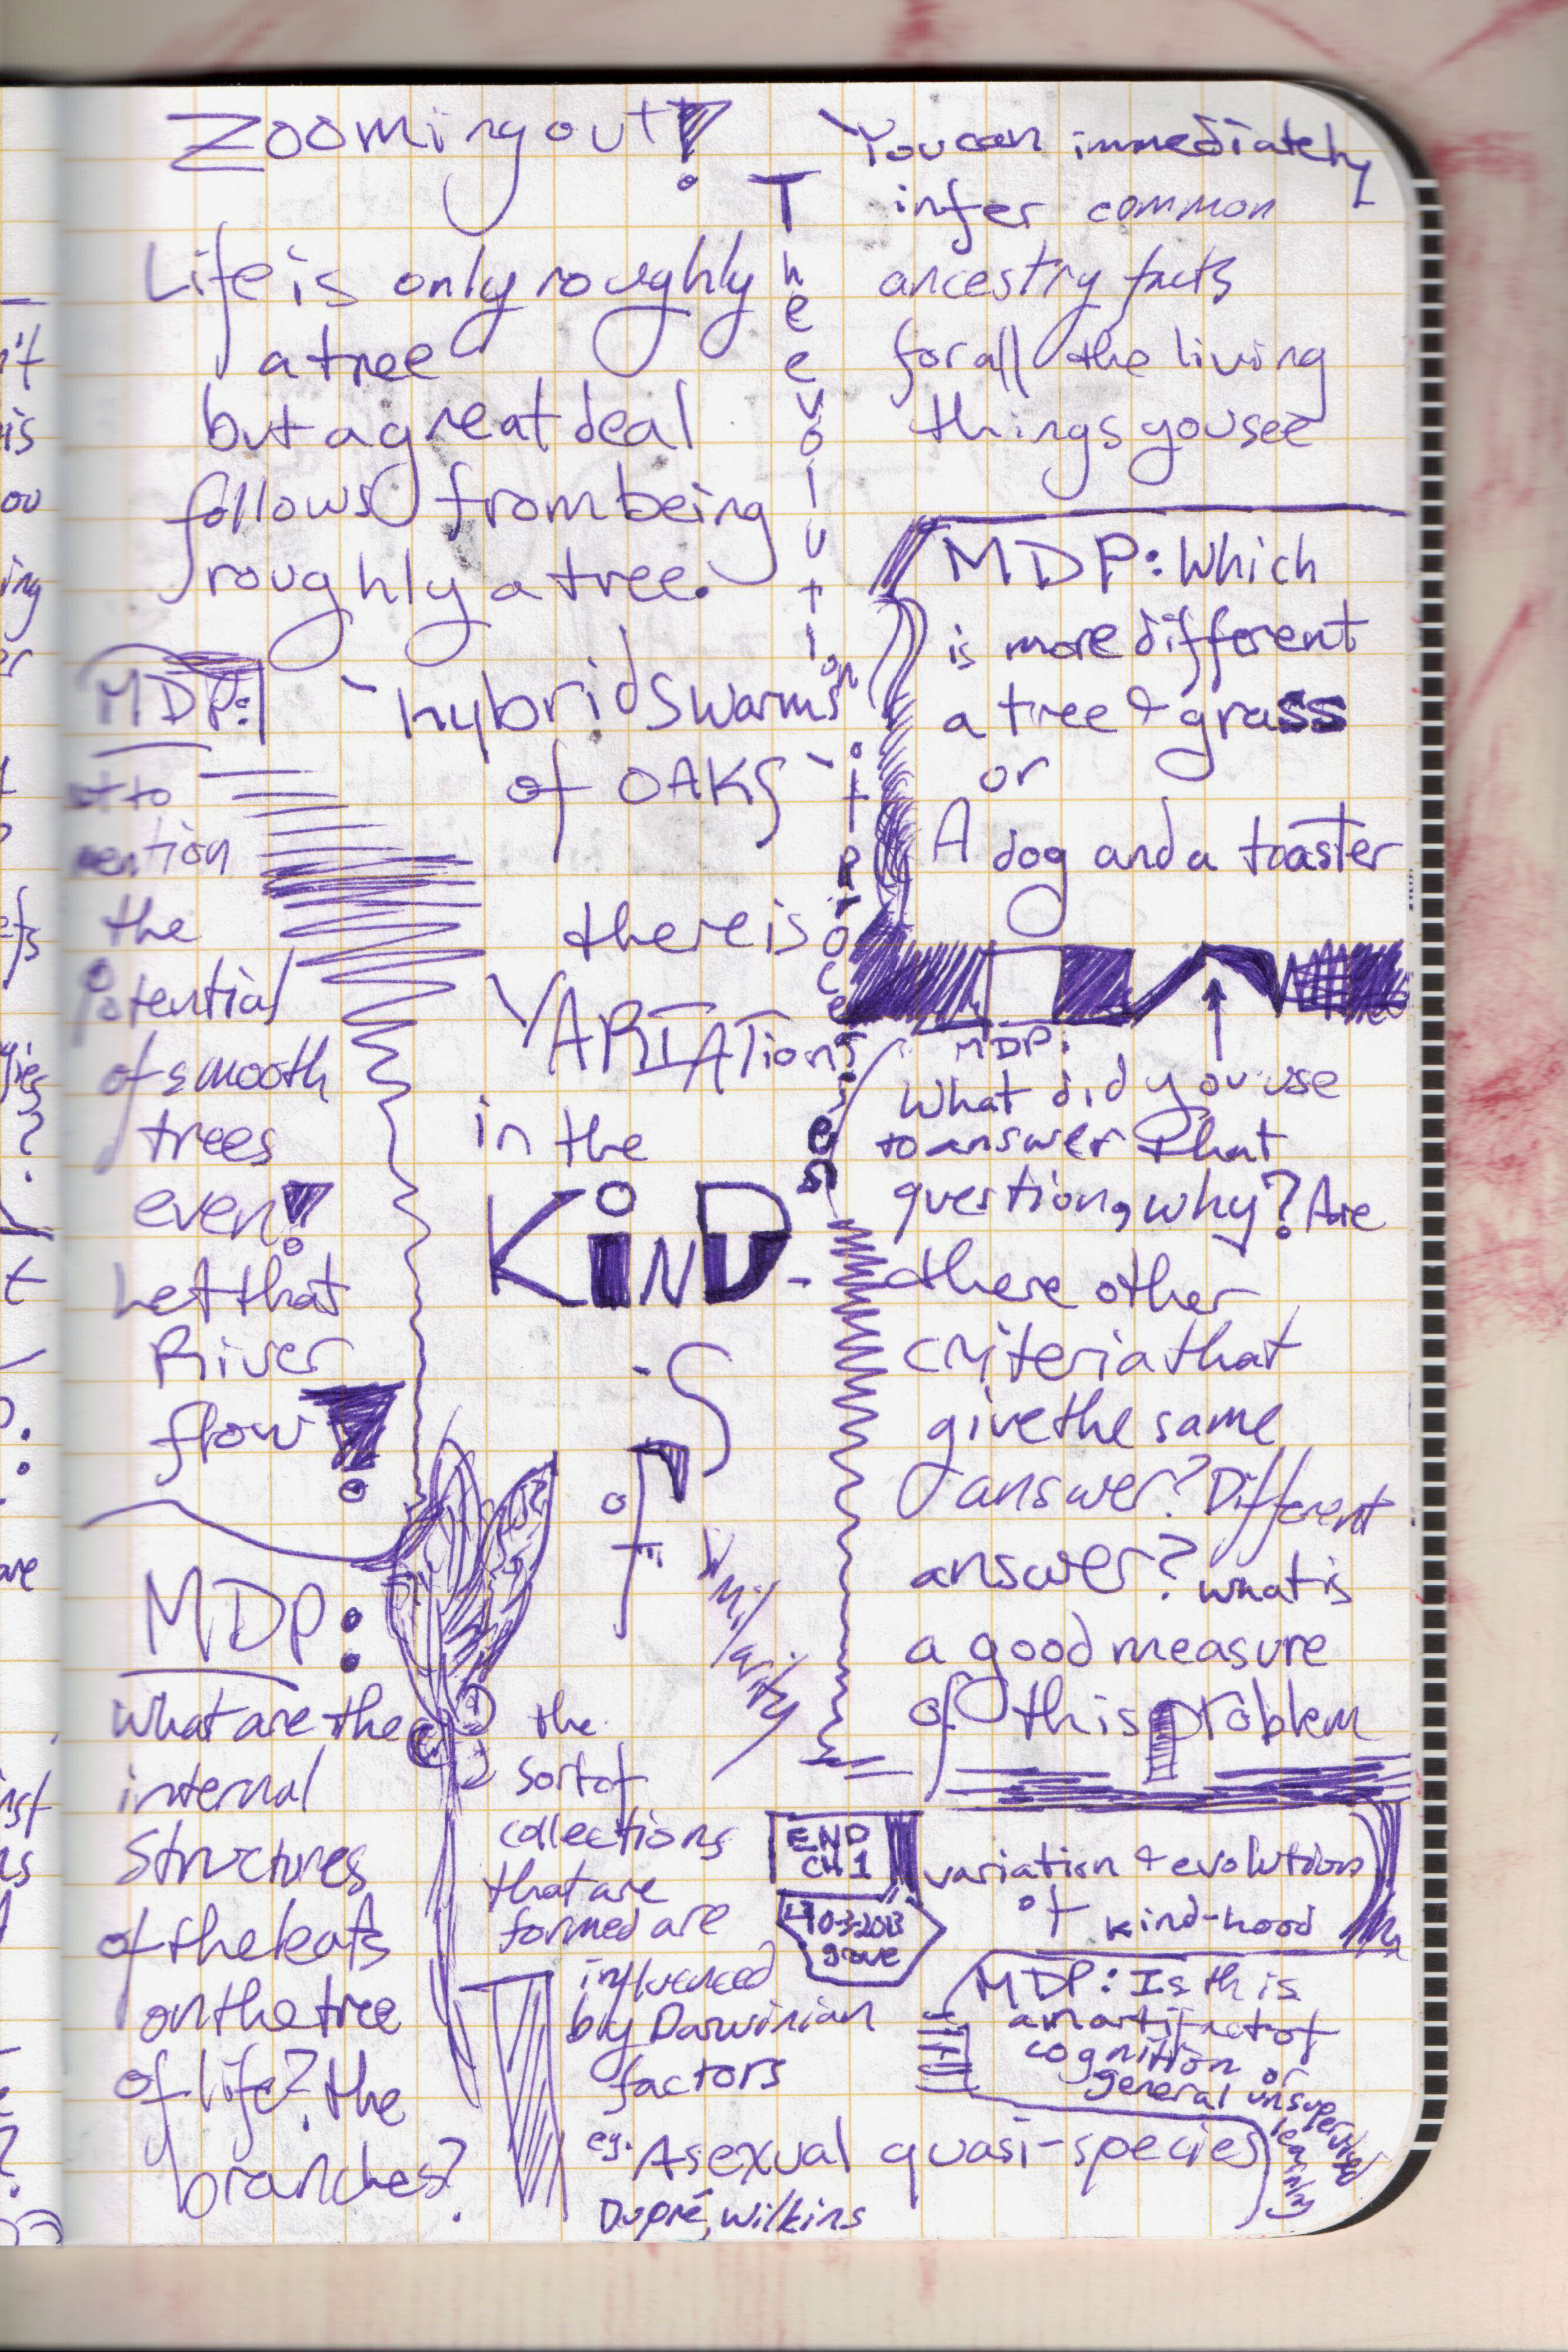 Zooming out!
Life is only roughly
a tree
but a great deal
follows from being
roughly a tree.
MDP:
hybrid swarms
of OAKS
not to
mention
the
potential
of smooth
trees
even!
Let that
River
flow!
there is
VARIATION
in the
KiND-
-S
of
similarity
MDP:
what are the
internal
structures
of the leafs
on the tree
of life? the
branches?
the
sort of
collections
that are
formed are
influenced
by Darwinian
factors
eg. Asexual quasi-species
Dupré, Wilkins
The evolution
it
processes
You can immediately
infer common
ancestry facts
for all the living
things you see
MDP: Which
is more different
a tree & grass
or
A dog and a toaster
MDP:
What did you use
to answer that
question, why? Are
there other
criteria that
give the same
answer? Different
answer? what is
a good measure
of this problem
END
CH 1
10-3-2013
grove
variation & evolution
of kind-hood
MDP: Is this
an artifact of
cognition or
general unsupervised
learning